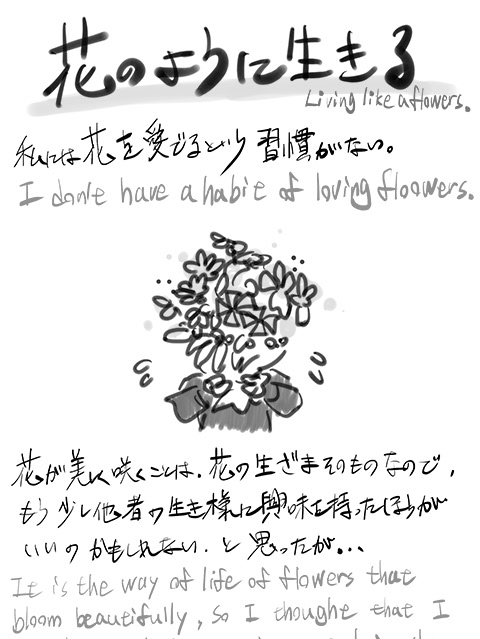 花のように生きる
Living like a flowers.
私には花を愛でるという習慣がない。
I don't have a habit of loving floowers.
花が美しく咲くことは、花の生ざまそのものなので、
もう少し他者の生き様に興味を持ったほうが
いいのかもしれない、と思ったが...
It is the way of life of flowers that
bloom beautifully, so I thought that I